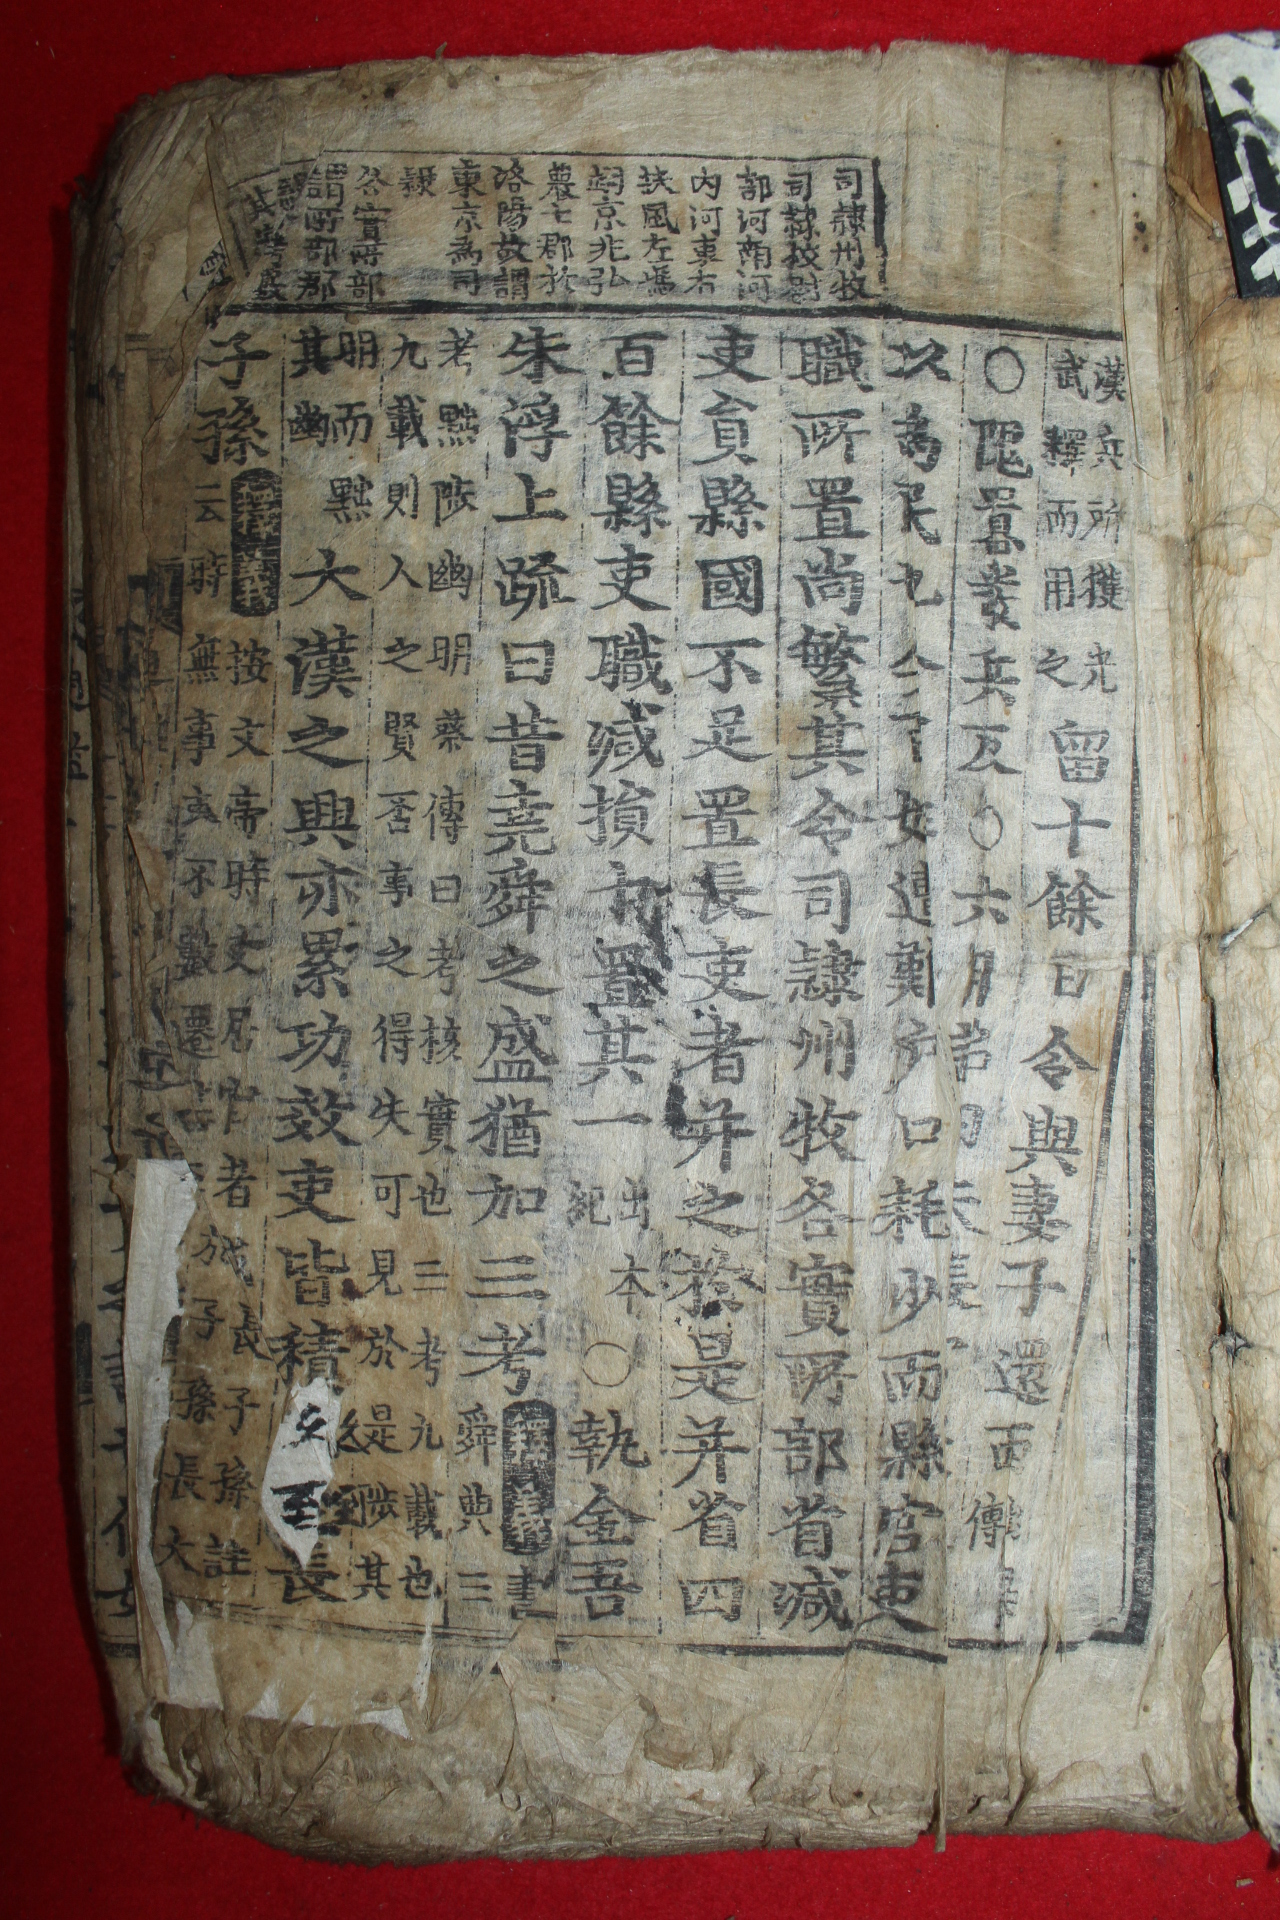 司隷州牧
司隷校尉
部河南河
内河東右
扶風左馮
翊京兆弘
農七郡於
洛陽故謂
東京為司
隷
各實所部
謂所部郡
漢兵所獲光
武釋而用之留十餘日令與妻子還
○隗囂發兵反○六月詔曰夫張官置吏
以為民也今百姓遭難戶口耗少而縣官吏
職所置尚繁其令司隷州牧各實所部省減
吏員縣國不足置長吏者并之於是并省四
百餘縣吏職减損十置其一
出本
紀
○執金吾
朱浮上疏曰昔堯舜之盛猶加三考
釋義
書
舜典三
考黜陟幽明蔡傳曰考核實也三考九載也
九載則人之賢否事之得失可見於是陟其
明而黜
其幽
大漢之興亦累功效吏皆積久至長
子孫
釋義
按文帝時吏居官者或長子孫註
云時無事吏不數遷
於子孫長大